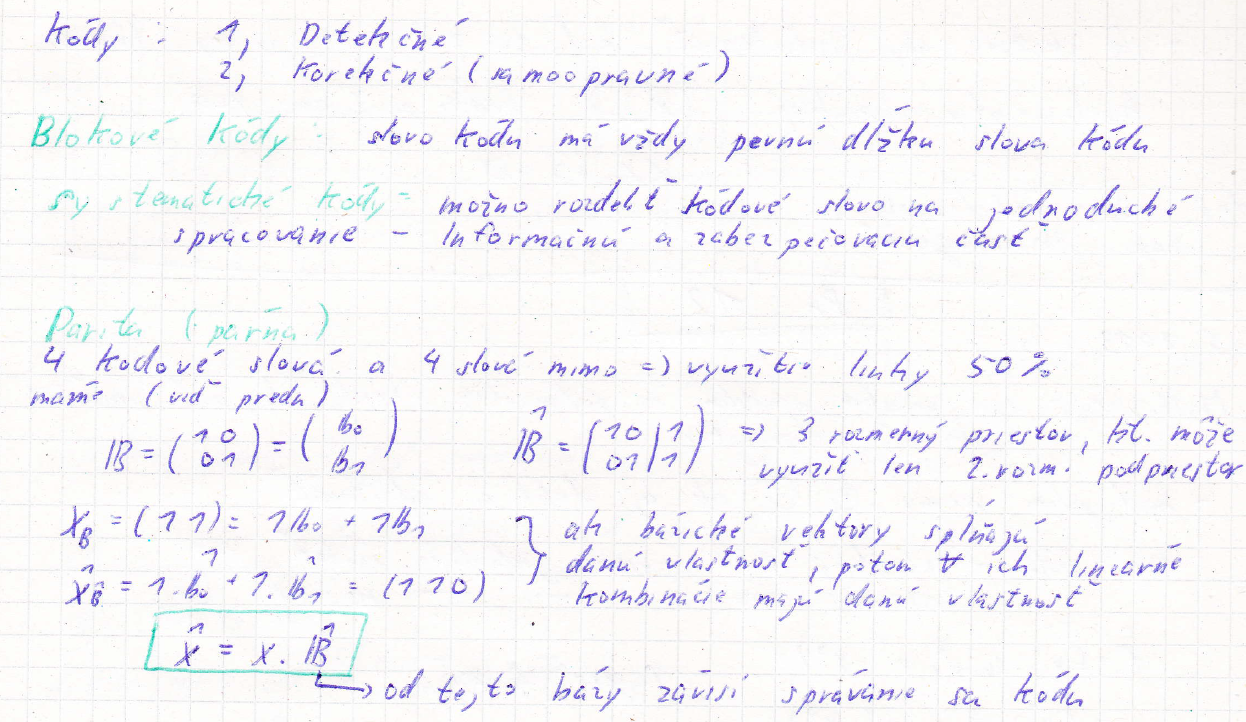 Kódy : 1, Detekčné
2, Korekčné (samoopravné)
Blokové kódy : slovo kódu má vždy pevnú dĺžku slova kódu
systematické kódy = možno rozdeliť kódové slovo na jednoduché
spracovanie - Informačnú a zabezpečovaciu časť
Parita (párna)
4 kodové slová a 4 slová mimo => využitie linky 50%
mamé (viď predu)
B = (1 0 / 0 1) = (b₀ / b₁) B̂ = (1 0 | 1 / 0 1 | 1) => 3 rozmerný priestor, kt. môže
využiť len 2.rozm. podpriestor
X_B = (1 1) = 1b₀ + 1b₁ } ak bázické vektory splňajú
danú vlastnosť, potom ∀ ich lineárne
x̂_B̂ = 1.b̂₀ + 1.b̂₁ = (1 1 0) kombinácie majú danú vlastnosť
x̂ = x. B̂
od tejto bázy závisí správanie sa kódu